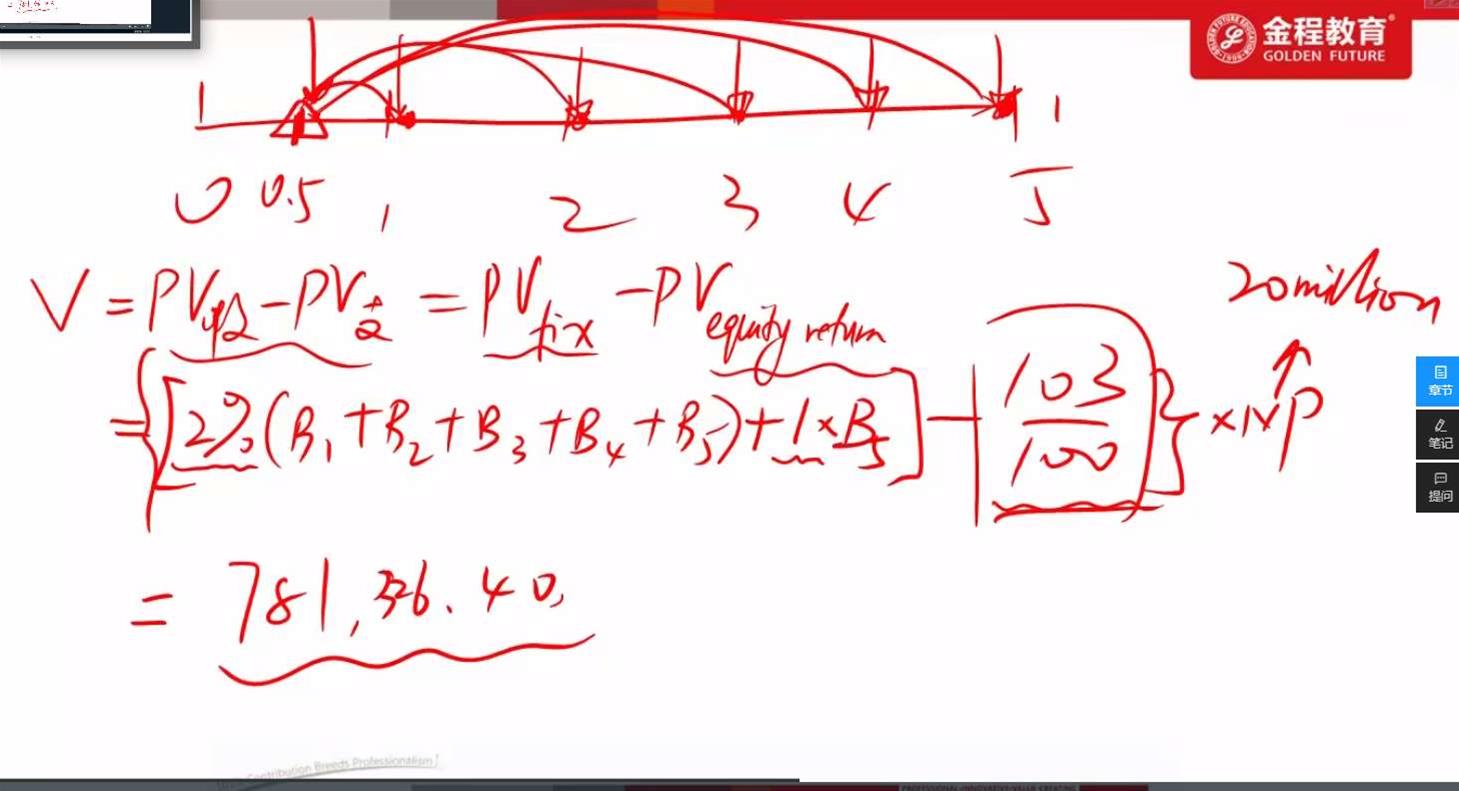 金程教育®
GOLDEN FUTURE
1 1
0 0.5 1 2 3 4 5
20 million
V = PV收 - PV支 = PV fix - PV equity return
= {[2%(B1 + B2 + B3 + B4 + B5) + 1×B5] - 103/100} ×1×P
= 781,36.40
章节
笔记
提问
Contribution Breeds Professionalism!